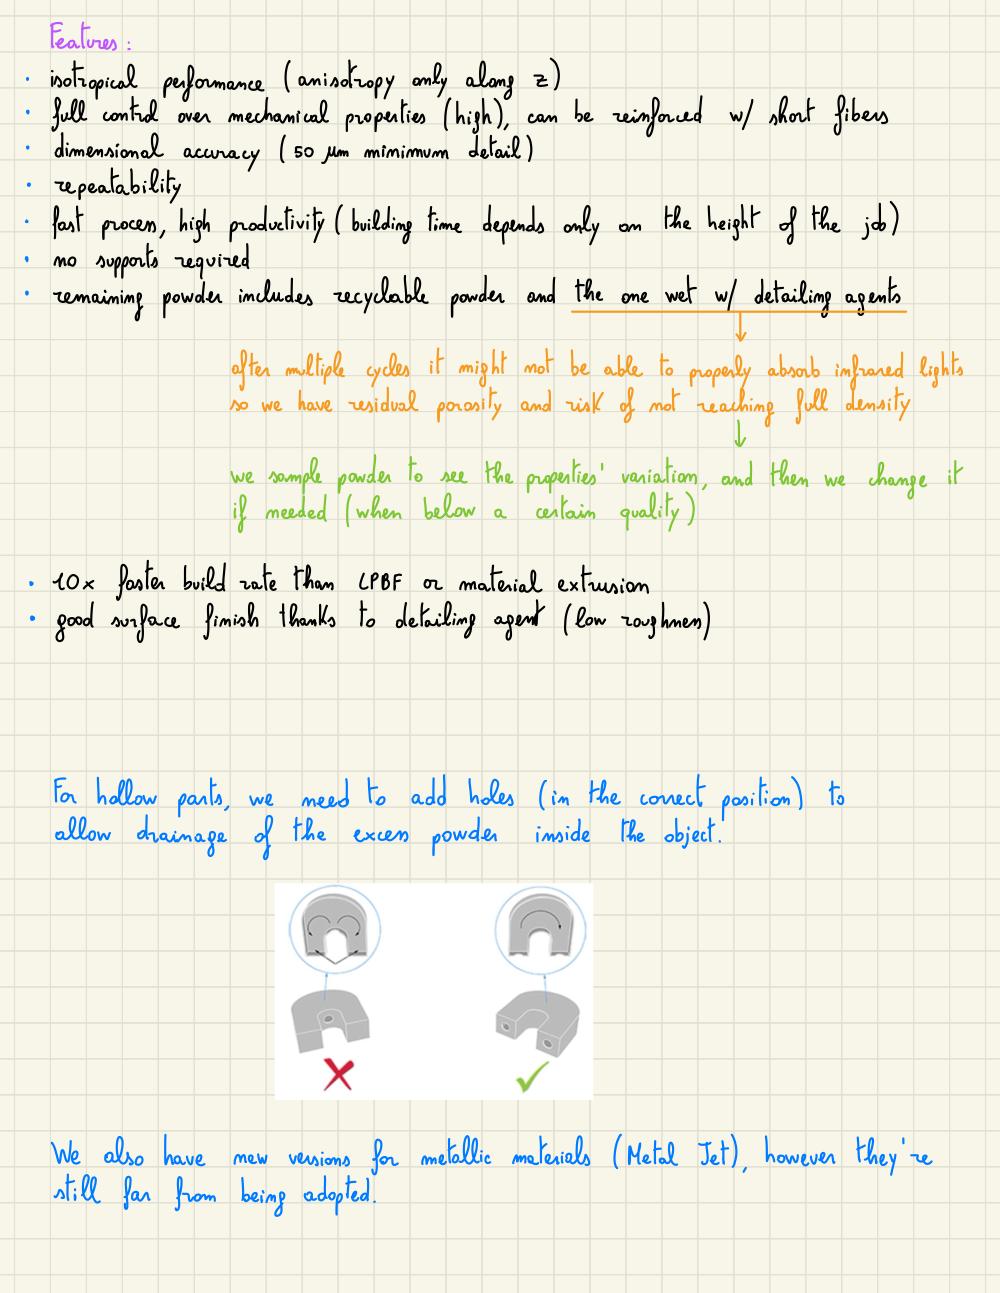 Features:
• isotropical performance (anisotropy only along z)
• full control over mechanical properties (high), can be reinforced w/ short fibers
• dimensional accuracy (50 µm minimum detail)
• repeatability
• fast process, high productivity (building time depends only on the height of the job)
• no supports required
• remaining powder includes recyclable powder and the one wet w/ detailing agents
after multiple cycles it might not be able to properly absorb infrared lights
so we have residual porosity and risk of not reaching full density
we sample powder to see the properties' variation, and then we change it
if needed (when below a certain quality)
• 10x faster build rate than LPBF or material extrusion
• good surface finish thanks to detailing agent (low roughness)
For hollow parts, we need to add holes (in the correct position) to
allow drainage of the excess powder inside the object.
We also have new versions for metallic materials (Metal Jet), however they're
still far from being adopted.